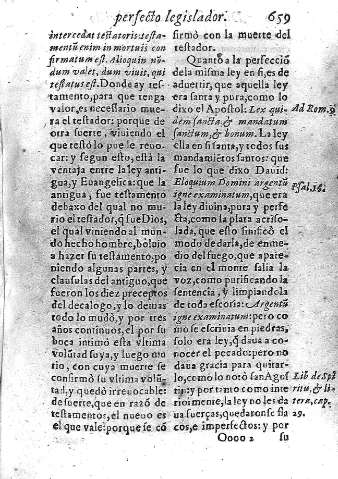 perfecto legislador. 659
intercedat testatoris: testa-
mentũ enim in mortuis con
firmatum est. Alioquin nõ-
dum valet, dum viuit, qui
testatus est. Donde ay tes-
tamento, para que tenga
valor, es necessario mue-
ra el testador: porque de
otra suerte, viuiendo el
que testò lo pue le reuo-
car: y segun esto, està la
ventaja entre la ley anti-
gua, y Euangelica: que la
antigua, fue testamento
debaxo del qual no mu-
rio el testador, q̃ fue Dios,
el qual viniendo al mun-
do hecho hombre, boluio
a hazer su testamento, po
niendo algunas partes, y
clausulas del antiguo, que
fueron los diez preceptos
del decalogo, y lo demas
todo lo mudó, y por tres
años continuos, el por su
boca intimó esta vltima
volũtad suya, y luego mu
rio, con cuya muerte se
confirmó su vltima volũ-
tad, y quedó irreuocable:
de suerte, que en razõ de
testamento, el nueuo es
el que vale: porque se có
firmò con la muerte del
testador.
Quanto a la perfecciõ
de la misma ley en si, es de
aduertir, que aquella ley
era santa y pura, como lo
dixo el Apostol: Lex qui-
dem sancta, & mandatum
sanctum, & bonum. La ley
ella en si santa, y todos sus
mandamiẽtos santos: que
fue lo que dixo Dauid:
Eloquium Domini argentũ
igne examinatum, que era
la ley diuina, pura y perfe
cta, como la plata acriso-
lada, que esto significó el
modo de darla, de en me-
dio del fuego, que apare-
cia en el monte salia la
voz, como purificando la
sentencia, y limpiandola
de toda escoria: Argentũ
igne examinatum: pero co
mo se escriuia en piedras,
solo era ley, q̃ daua a co-
nocer el pecado: pero no
daua gracia para quitar-
lo, como lo notó san Agus
tin: y por tanto como inte
rìa, la ley no les da
ua fuerças, quedaronse fla
cos, e imperfectos: y por
Oooo 2 su
Ad Rom. 7
Psal. 14.
Lib de Spi
ritu, & li-
tera, cap.
29.